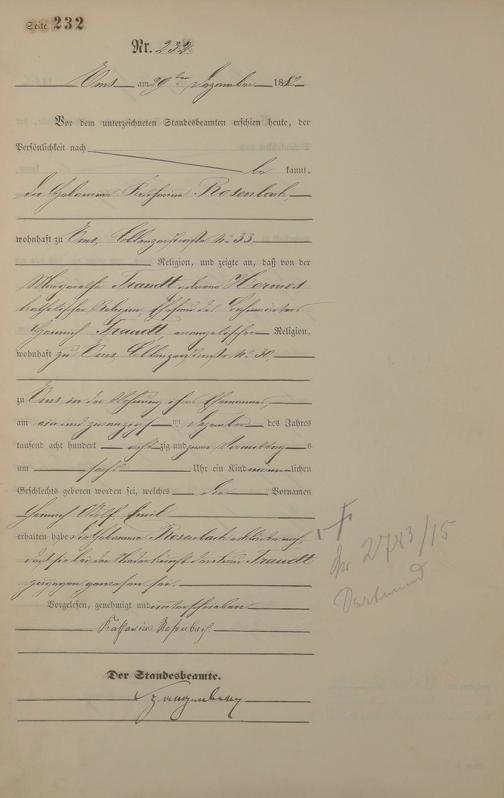 Seite 232
Nr. 232
Ems am 29ten Dezember 1882
Vor dem unterzeichneten Standesbeamten erschien heute, der
Persönlichkeit nach be kannt,
die Hebamme Katharina Rosenbach
wohnhaft zu Ems, Coblenzerstraße No 33
Religion, und zeigte an, daß von der
Margarethe Traudt geborene Hermes
katholischer Religion Ehefrau des
Heinrich Traudt evangelischer Religion,
wohnhaft zu Ems, Coblenzerstraße No 30
zu Ems in der Wohnung ihres Ehemannes,
am ein und zwanzigsten Dezember des Jahres
tausend acht hundert acht zig und zwei Vormittags
um sechs Uhr ein Kind männlichen
Geschlechts geboren worden sei, welches die Vornamen
Heinrich Adolf Emil
erhalten habe die Hebamme Rosenbach erklärte noch,
daß sie bei der Niederkunft der Frau Traudt
zugegen gewesen sei.
Vorgelesen, genehmigt und unterschrieben
Katharina Rosenbach
Der Standesbeamte.
Spangenberg
No 2743/15
Dortmund